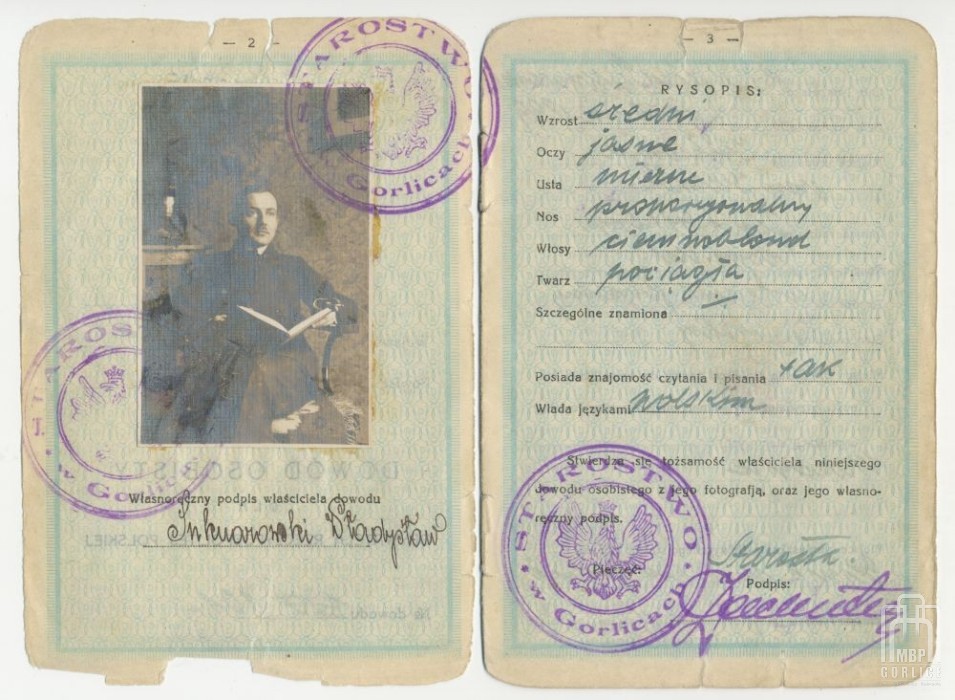 — 2 —
STAROSTWO
w Gorlicach
STAROSTWO
w Gorlicach
DOWÓD OSOBISTY
Własnoręczny podpis właściciela dowodu
Władysław
POLSKIEJ
Nr dowodu
— 3 —
RYSOPIS:
Wzrost średni
Oczy jasne
Usta mierne
Nos proporcjonalny
Włosy ciemnoblond
Twarz pociągła
Szczególne znamiona —
Posiada znajomość czytania i pisania tak
Włada językami polskim
Stwierdza się tożsamość właściciela niniejszego
dowodu osobistego z jego fotografją, oraz jego własno-
ręczny podpis.
STAROSTWO
w Gorlicach
Starosta.
Pieczęć:
Podpis:
MBP
GORLICE